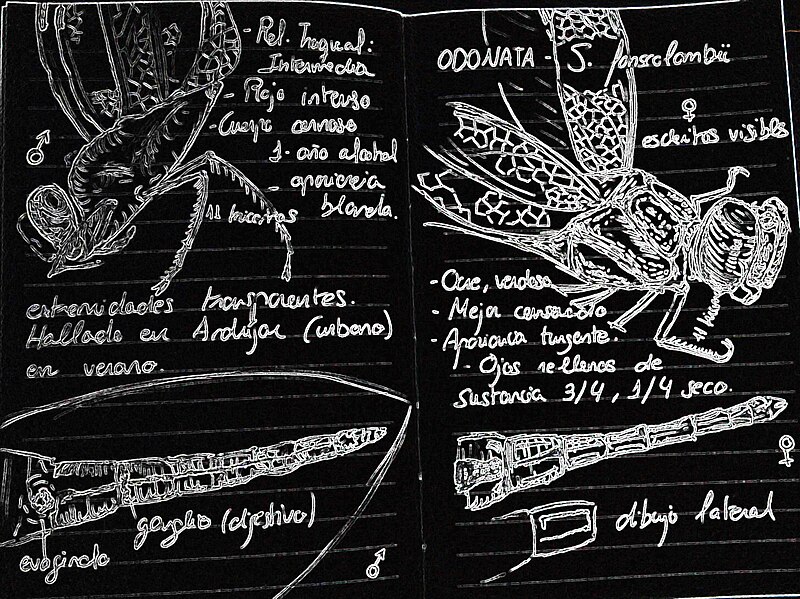 - Rel. Troqual:
Intermedia
- Rojo intenso
- Cuerpo
1 año alcohol
- apariencia
blanda.
♂
11
extremidades transparentes.
Hallado en Andújar (urbano)
en verano.
ganglio (digestivo)
evaginado
♂
ODONATA - S. fonscolombii
♀
escleritos visibles
- Ocre, verdoso
- Mejor conservado
- Apariencia turgente.
- Ojos rellenos de
sustancia 3/4, 1/4 seco.
11
♀
dibujo lateral